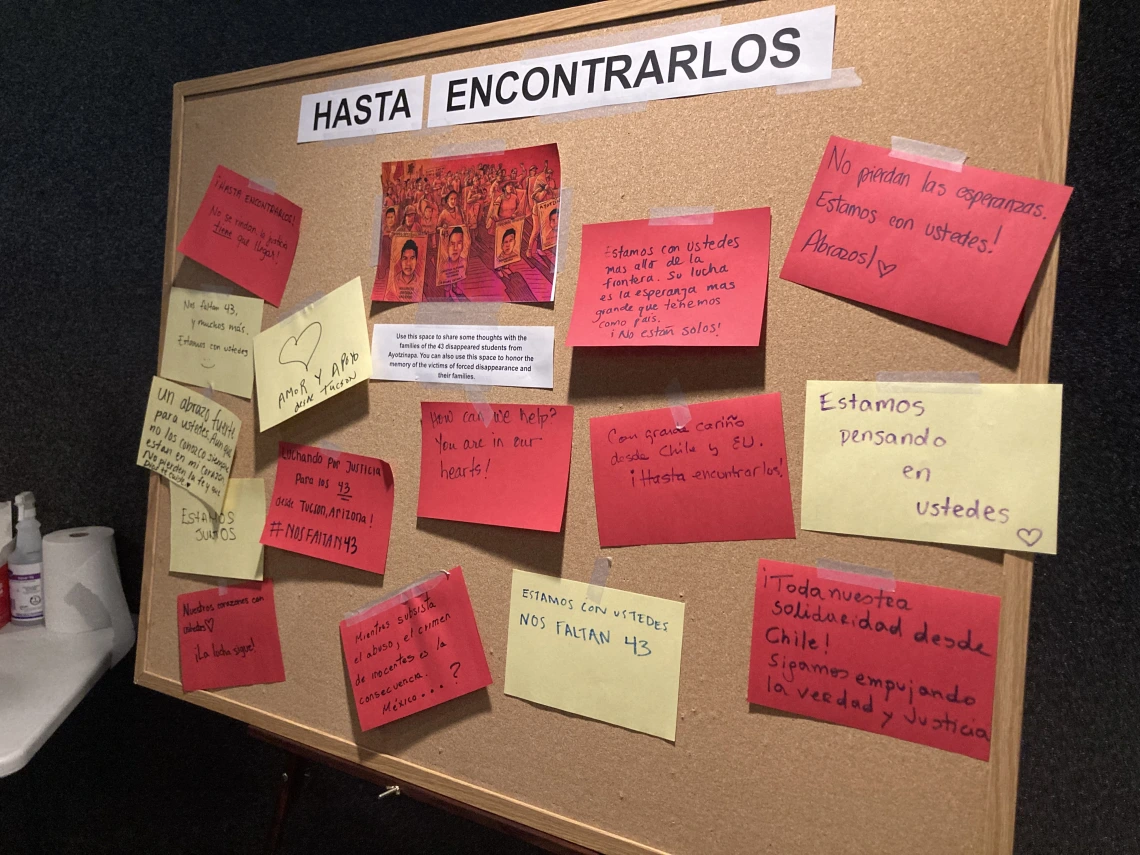 HASTA ENCONTRARLOS
¡HASTA ENCONTRARLOS!
No se rindan, la justicia
tiene que llegar!
Nos faltan 43,
y muchos más.
Estamos con ustedes
AMOR Y APOYO
desde TUCSON
Use this space to share some thoughts with the
families of the 43 disappeared students from
Ayotzinapa. You can also use this space to honor the
memory of the victims of forced disappearance and
their families.
Estamos con ustedes
mas allá de la
frontera. Su lucha
es la esperanza mas
grande que tenemos
como país.
¡No están solos!
No pierdan las esperanzas.
Estamos con ustedes!
Abrazos!
un abrazo fuerte
para ustedes. Aunque
no los conozco siempre
están en mi corazón
No pierdan la fe y que
ESTAMOS
JUNTOS
LUCHANDO POR JUSTICIA
PARA los 43
desde TUCSON, ARIZONA!
#NOSFALTAN43
How can we help?
You are in our
hearts!
Con grande cariño
desde Chile y EU.
¡Hasta encontrarlos!
Estamos
pensando
en
ustedes
Nuestros corazones con
ustedes
¡La lucha sigue!
Mientras subsista
el abuso, el crimen
de inocentes es la
consecuencia.
México....?
ESTAMOS CON USTEDES
NOS FALTAN 43
¡Toda nuestra
solidaridad desde
Chile!
Sigamos empujando
la verdad y Justicia